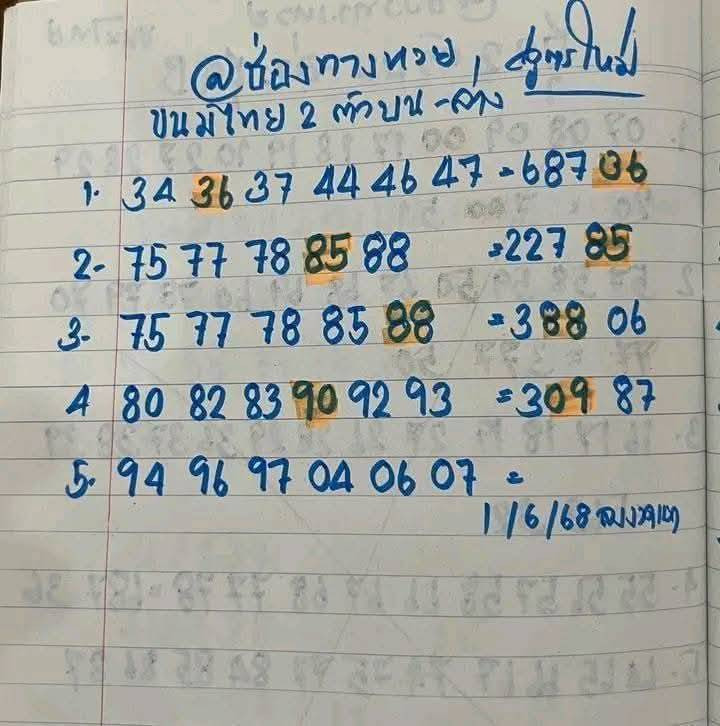 @ช่องทางหวย, สูตรใหม่
ขนมไทย 2 ตัวบน-ล่าง
1. 34 36 37 44 46 47 = 687 36
2- 75 77 78 85 88 = 227 85
3- 75 77 78 85 88 = 388 06
4 80 82 83 90 92 93 = 309 87
5. 94 96 97 04 06 07 =
1/6/68